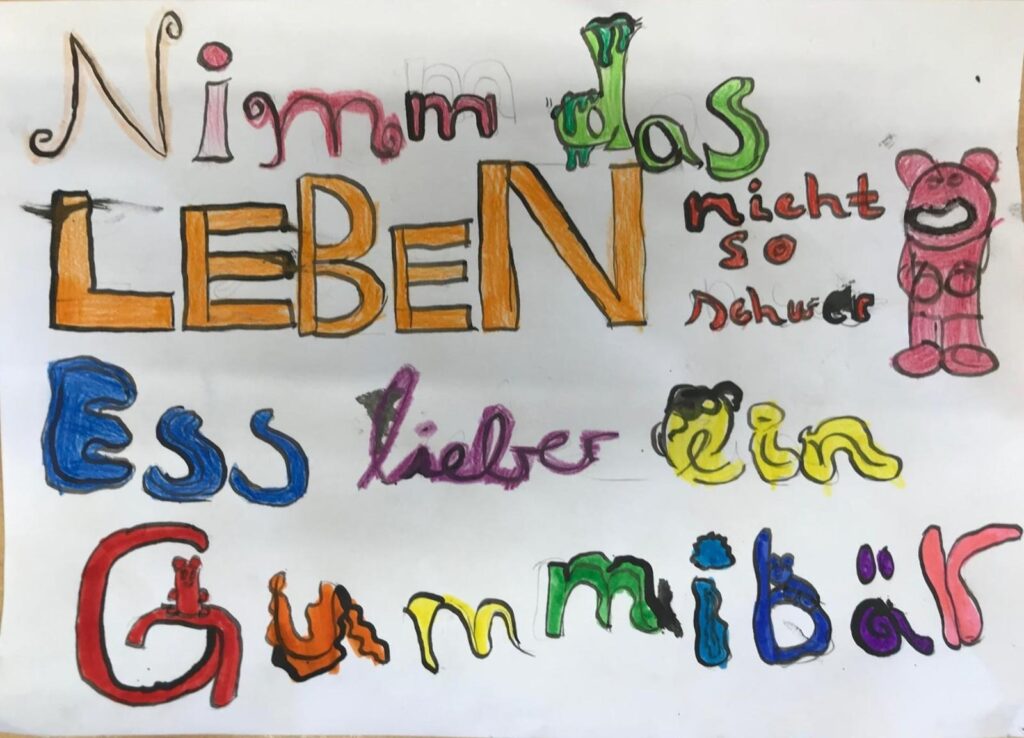 Nimm das
LEBEN
nicht
so
schwer
Ess lieber ein
Gummibär